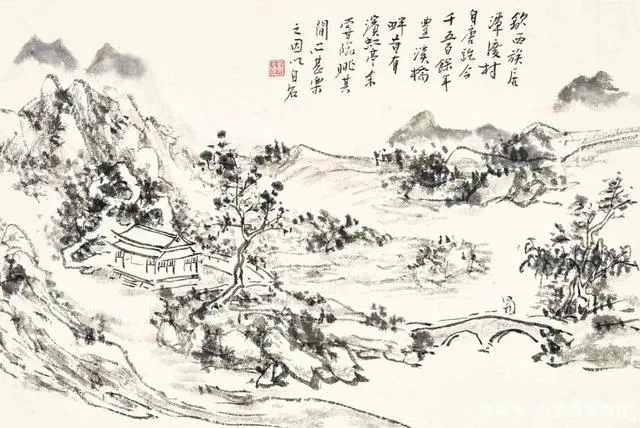 歙西族居
潭渡村
自唐訖今
千五百餘年
豊溪橋
畔有
濱虹亭余
嘗臨眺其
間心甚樂
之因以自名